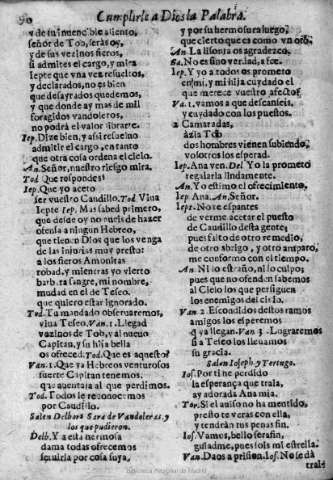 90 Cumplirle a Dios la Palabra.
y de su inuencible aliento,
señor de Tob, seràs oy,
y de sus vezinos fieros,
si admites el cargo, y mira
Iepte que vna vez resueltos,
y declarados, no es bien
que desayrados quedemos,
y que donde ay mas de mil
foragidos vandoleros,
no podrà el valor librarte.
Iep. Dize bien, y assi resueluo
admitir el cargo, en tanto
que otra cosa ordena el cielo.
An. Señor, nuestro riesgo mira.
Tod. Que respondes?
Iep. Que yo aceto
ser vuestro Caudillo. Tod. Viua
Iepte Iep. Mas sabed primero,
que desde oy no aueis de hazer
ofensa a ningun Hebreo,
que tienen Dios que los venga
de las injurias muy presto:
a los fieros Amonitas
robad, y mientras yo vierto
barbara sangre, mi nombre,
mudad en el de Teseo.
que quiero estar ignorado.
Tod. Tu mandado obseruaremos,
viua Teseo. Van. 1. Llegad
vazinos de Tob, y al nueuo
Capitan, y su hija bella
os ofreced. Tod. Que es aquesto?
Van. 1. Que ya Hebreos venturosos
fuerte Capitan tenemos,
que auentaja al que perdimos.
Tod. Todos le reconocemos
por Caudillo.
Salen Delbora Sara de Vandoleras, y
los que pudieren.
Delb. Y a esta hermosa
dama todas ofrecemos
seguirla por cosa suya,
y por su hermosura luego,
que cierto que es como vn oro.
An. La lisonja os agradezco.
Sa. No es sino verdad, a fee.
Iep. Y yo a todos os prometo
en mi, y mi hija cuydado el
que merece vuestro afecto.
Va. 1. vamos a que descanseis,
y cuydado con los puestos.
2 Camaradas,
àzia Tob
dos hombres vienen subiendo,
volotres los esperad.
Iep. Ana ven. Del Yo la prometo
regalarla lindamente.
An. Yo estimo el ofrecimiento,
Iep. Ana. An. Señor,
Iept. No te espantes
de verme acetar el puesto
de Caudillo desta gente,
pues falto de otro remedio,
de otro abrigo, y otro amparo,
me conformo con el tiempo.
An. Ni lo estraño, ni lo culpo,
pues que no ofendan sabemos
al Cielo los que persiguen
los enemigos del cielo.
Van. 2 Escondidos destos ramos
amigos los esperemos
q̃ ya llegan. Van. 3. Lograremos
si a Teseo los lleuamos
su gracia.
Salen Ioseph, y Tortugo.
Ios. Por ti he perdido
la esperança que traìa,
ay adorada Ana mia.
Tor. Si el auiso no ha mentido,
presto te veras con ella,
y tendràn tus penas fin.
Ios. Vamos, bello serafin,
guiadme, pues sois mi estrella.
Van. Daos a prision. Ios. No se dà
trals
Biblioteca Regional de Madrid